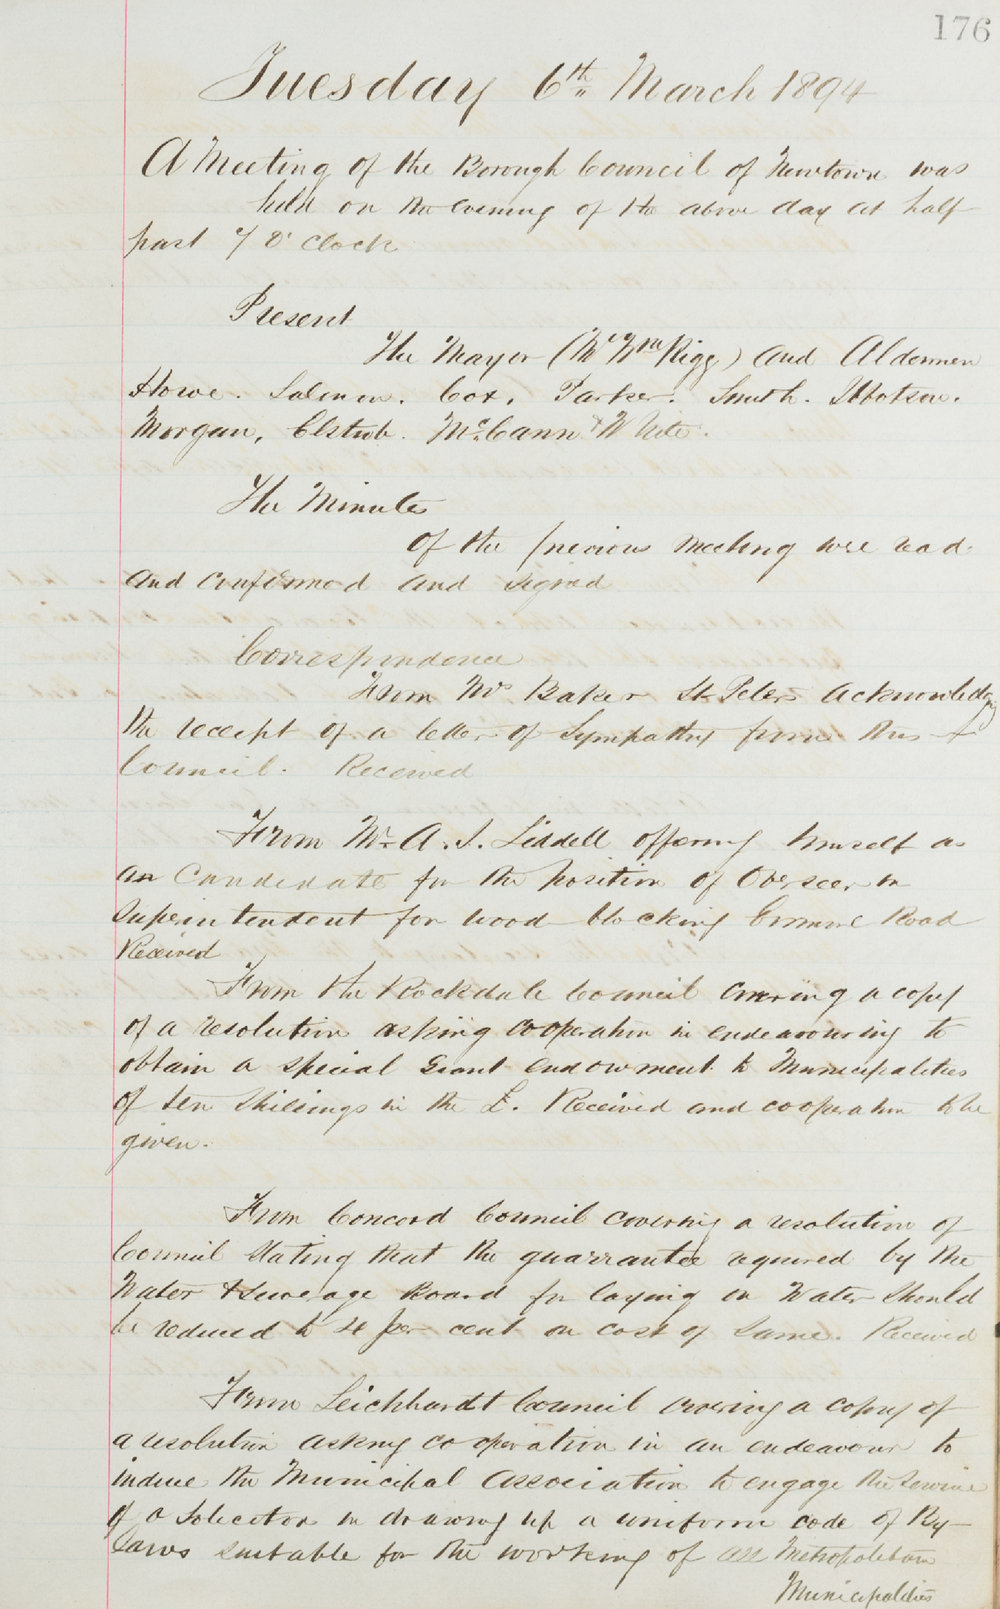 176
Tuesday 6th March 1894
A Meeting of the Borough Council of Newtown was
held on the Evening of the above day at half
past 7 O'Clock
Present
The Mayor (Mr Wm Rigg) and Aldermen
Howe. Salmon. Cox. Parker. Smith. Ibbotson.
Morgan, Elstub. McCann & White.
The Minutes
of the previous meeting were read
and confirmed and signed
Correspondence
From Mrs Baker St Peters acknowledging
the receipt of a letter of Sympathy from this
Council. Received
From Mr A. J. Liddell offering himself as
an Candidate for the position of Overseer or
Superintendent for wood blocking Enmore Road
Received
From the Rockdale Council covering a copy
of a resolution asking cooperation in endeavouring to
obtain a special Grant endowment to Municipalities
of ten Shillings in the £. Received and cooperation to be
given.
From Concord Council covering a resolution of
Council Stating that the guarrantee required by the
Water & Sewerage Board for laying on Water should
be reduced to 4 per cent on cost of same. Received
From Leichhardt Council covering a copy of
a resolution asking cooperation in an endeavour to
induce the Municipal Association to engage the service
of a Solicitor in drawing up a uniform code of By-
laws suitable for the working of all Metropolitan
Municipalities